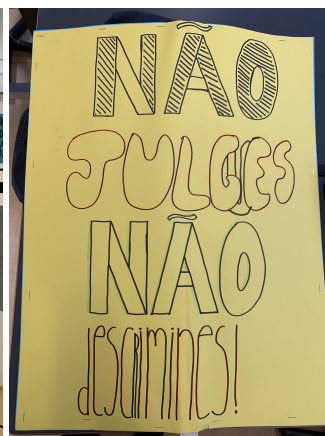 NÃO
JULGUES
NÃO
descrimines!